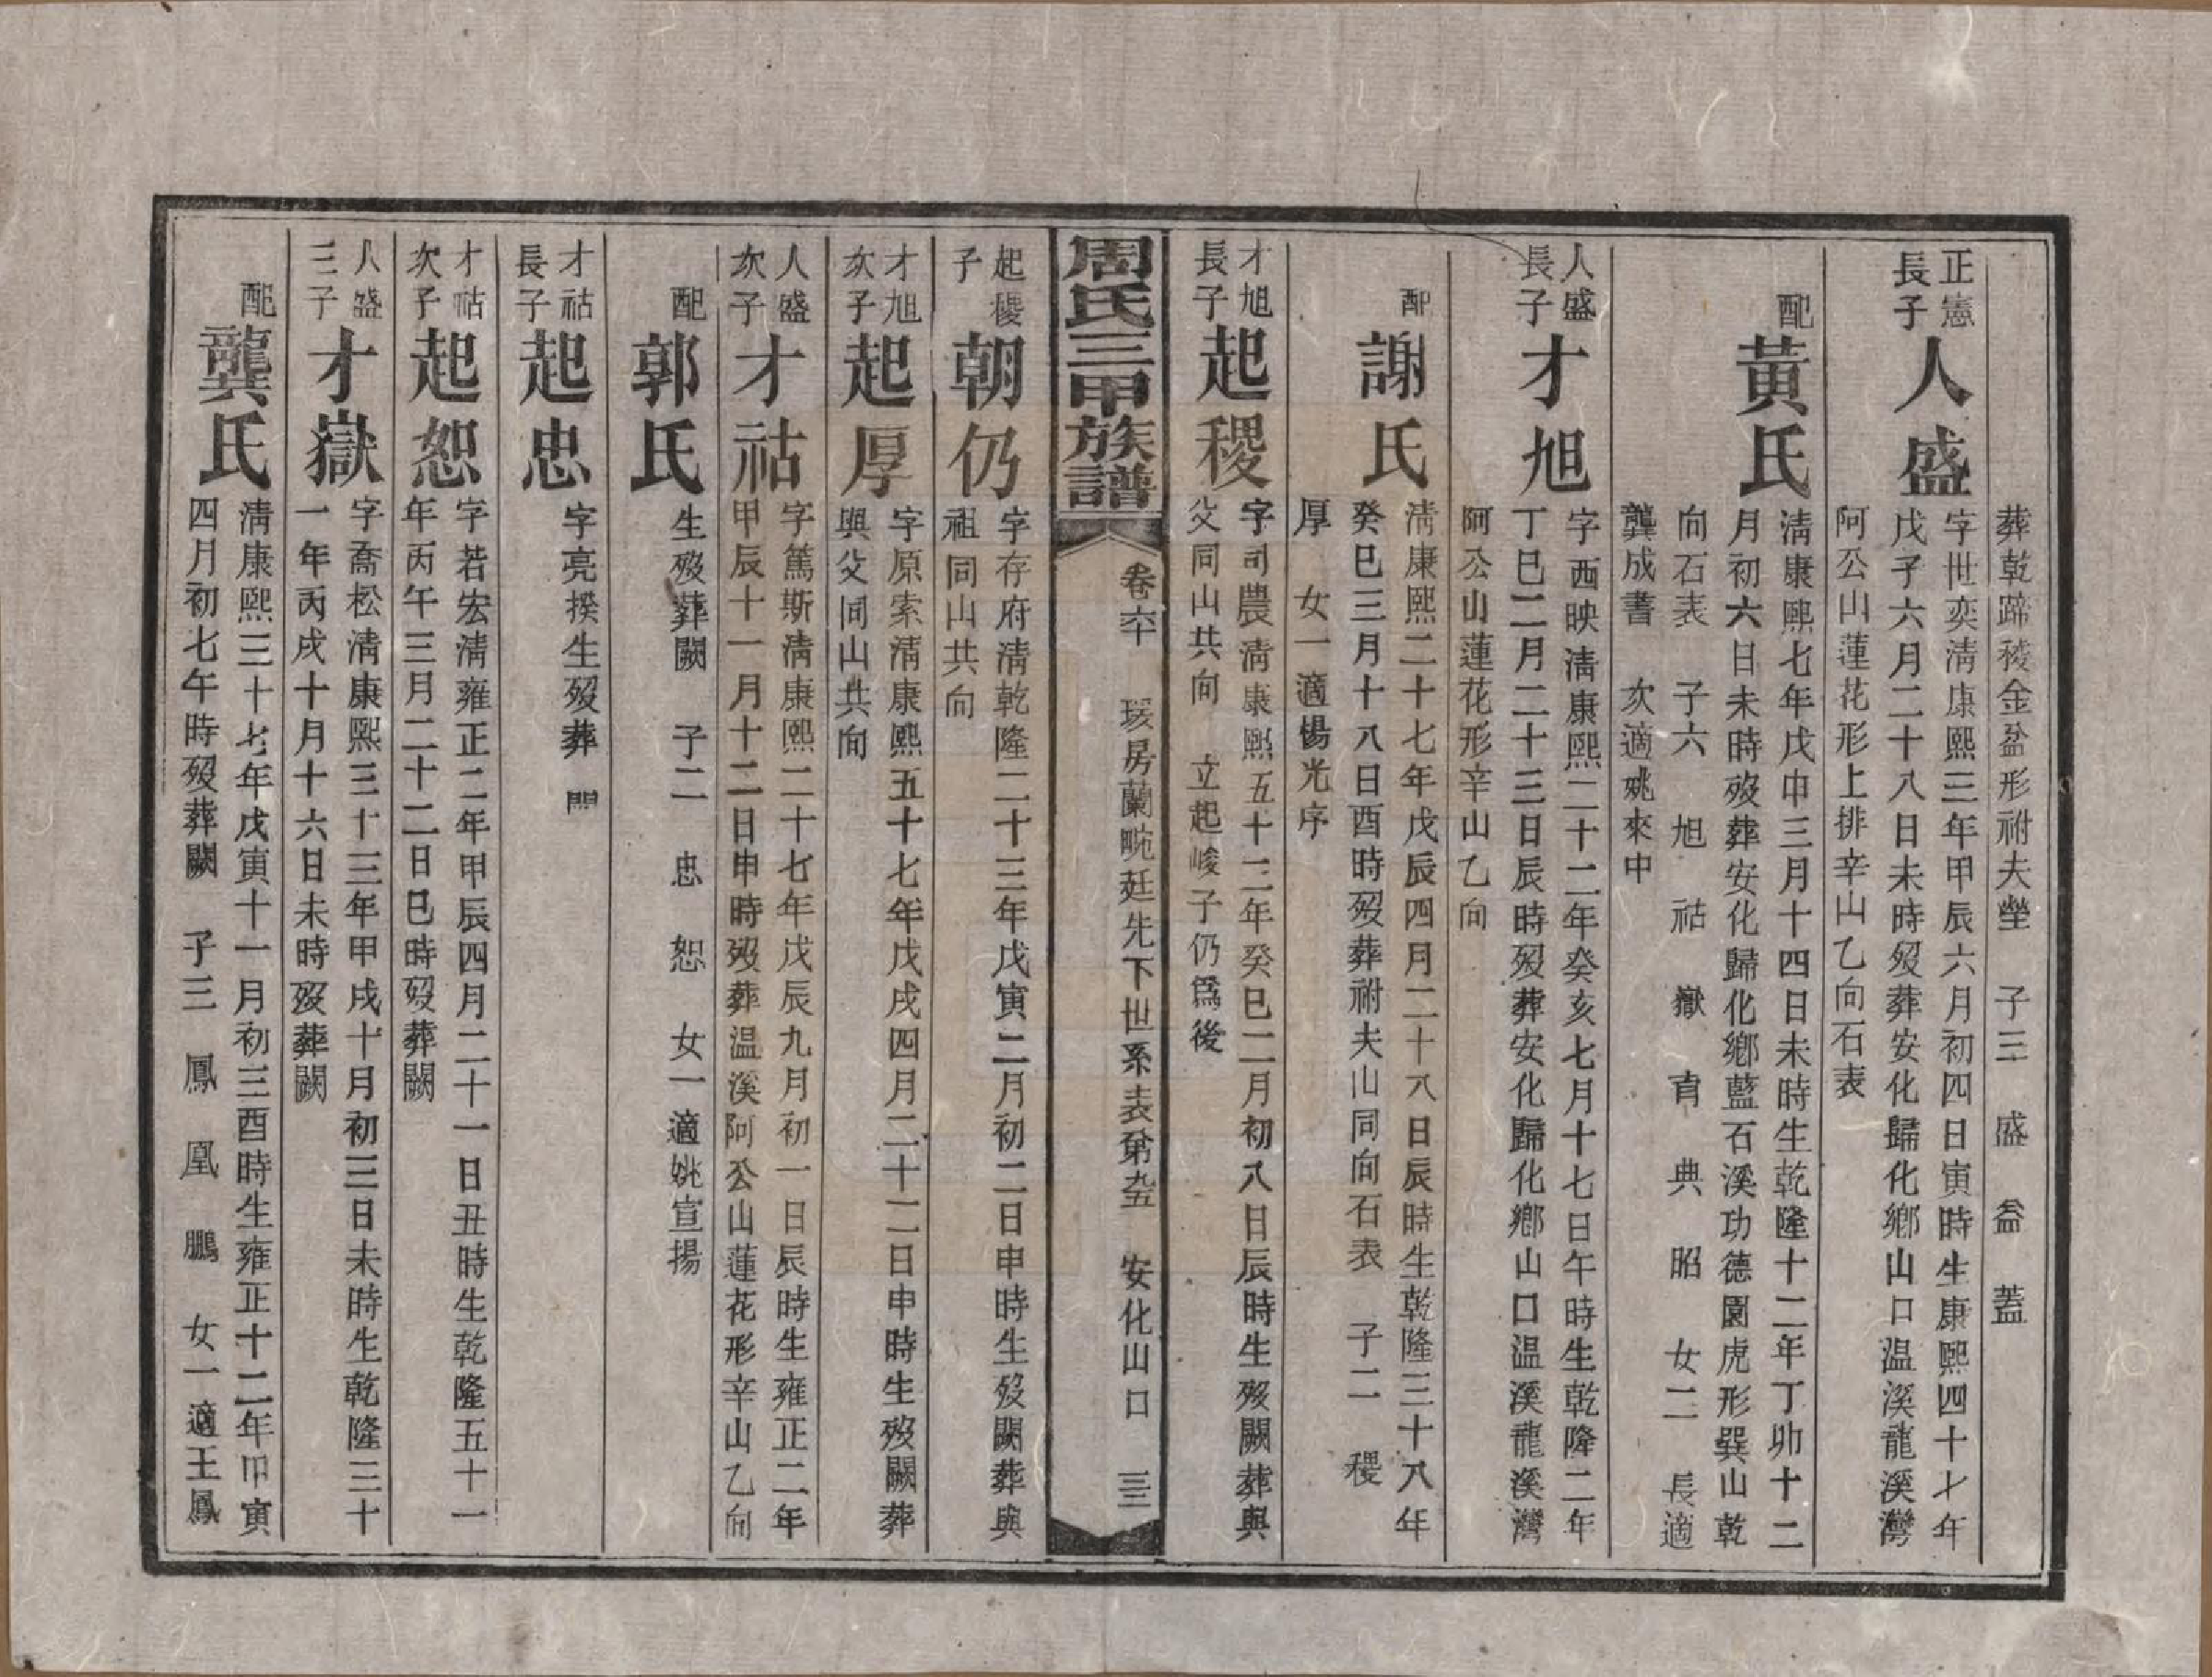 葬乾蹄稜金盆形祔夫塋 子三 盛 益 蓋
正憲
長子
人盛
字世奕淸康熙三年甲辰六月初四日寅時生康熙四十七年
戊子六月二十八日未時歿葬安化歸化鄉山口温溪龍溪灣
阿公山蓮花形上排辛山乙向石表
配
黃氏
淸康熙七年戊申三月十四日未時生乾隆十二年丁卯十二
月初六日未時歿葬安化歸化鄉藍石溪功德園虎形巽山乾
向石表 子六 旭 祜 嶽 育 典 昭 女二 長適
龔成書 次適姚來中
人盛
長子
才旭
字西映淸康熙二十二年癸亥七月十七日午時生乾隆二年
丁巳二月二十三日辰時歿葬安化歸化鄉山口温溪龍溪灣
阿公山蓮花形辛山乙向
配
謝氏
淸康熙二十七年戊辰四月二十八日辰時生乾隆三十八年
癸巳三月十八日酉時歿葬祔夫山同向石表 子二 稷
厚 女一適楊光序
才旭
長子
起稷
字司農淸康熙五十二年癸巳二月初八日辰時生歿闕葬與
父同山共向 立起峻子仍爲後
周氏三甲族譜
卷六十 瑗房蘭畹廷先下世系表第九五 安化山口 三三
起稷
子
朝仍
字存府淸乾隆二十三年戊寅二月初二日申時生歿闕葬與
祖同山共向
才旭
次子
起厚
字原索淸康熙五十七年戊戌四月二十二日申時生歿闕葬
與父同山共向
人盛
次子
才祜
字篤斯淸康熙二十七年戊辰九月初一日辰時生雍正二年
甲辰十一月十二日申時歿葬温溪阿公山蓮花形辛山乙向
配
郭氏
生歿葬闕 子二 忠 恕 女一適姚宣揚
才祜
長子
起忠
字亮揆生歿葬
才祜
次子
起恕
字若宏淸雍正二年甲辰四月二十一日丑時生乾隆五十一
年丙午三月二十二日巳時歿葬闕
人盛
三子
才嶽
字喬松淸康熙三十三年甲戌十月初三日未時生乾隆三十
一年丙戌十月十六日未時歿葬闕
配
龔氏
淸康熙三十七年戊寅十一月初三酉時生雍正十二年甲寅
四月初七午時歿葬闕 子三 鳳 凰 鵬 女一適王鳳